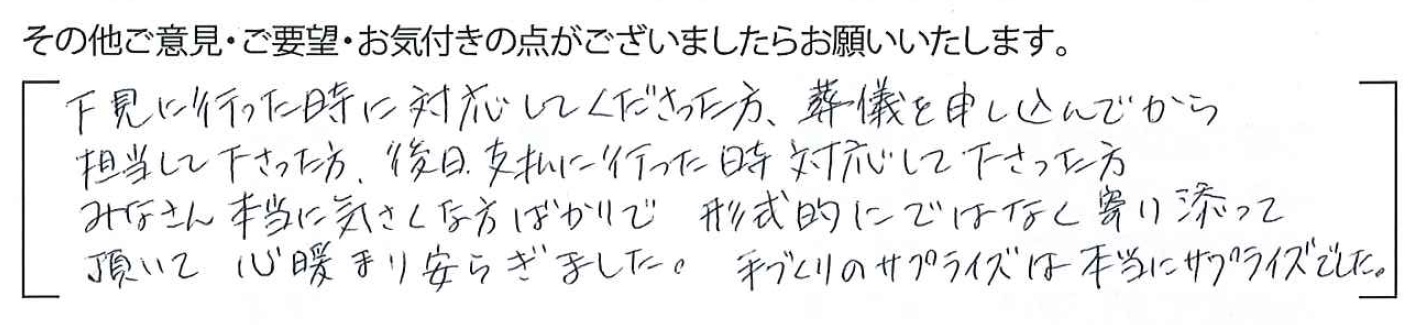 その他ご意見・ご要望・お気付きの点がございましたらお願いいたします。
下見に行った時に対応してくださった方、葬儀を申し込んでから
担当して下さった方、後日、支払に行った時対応して下さった方
みなさん本当に気さくな方ばかりで 形式的にではなく寄り添って
頂いて 心暖まり安らぎました。 手づくりのサプライズは本当にサプライズでした。